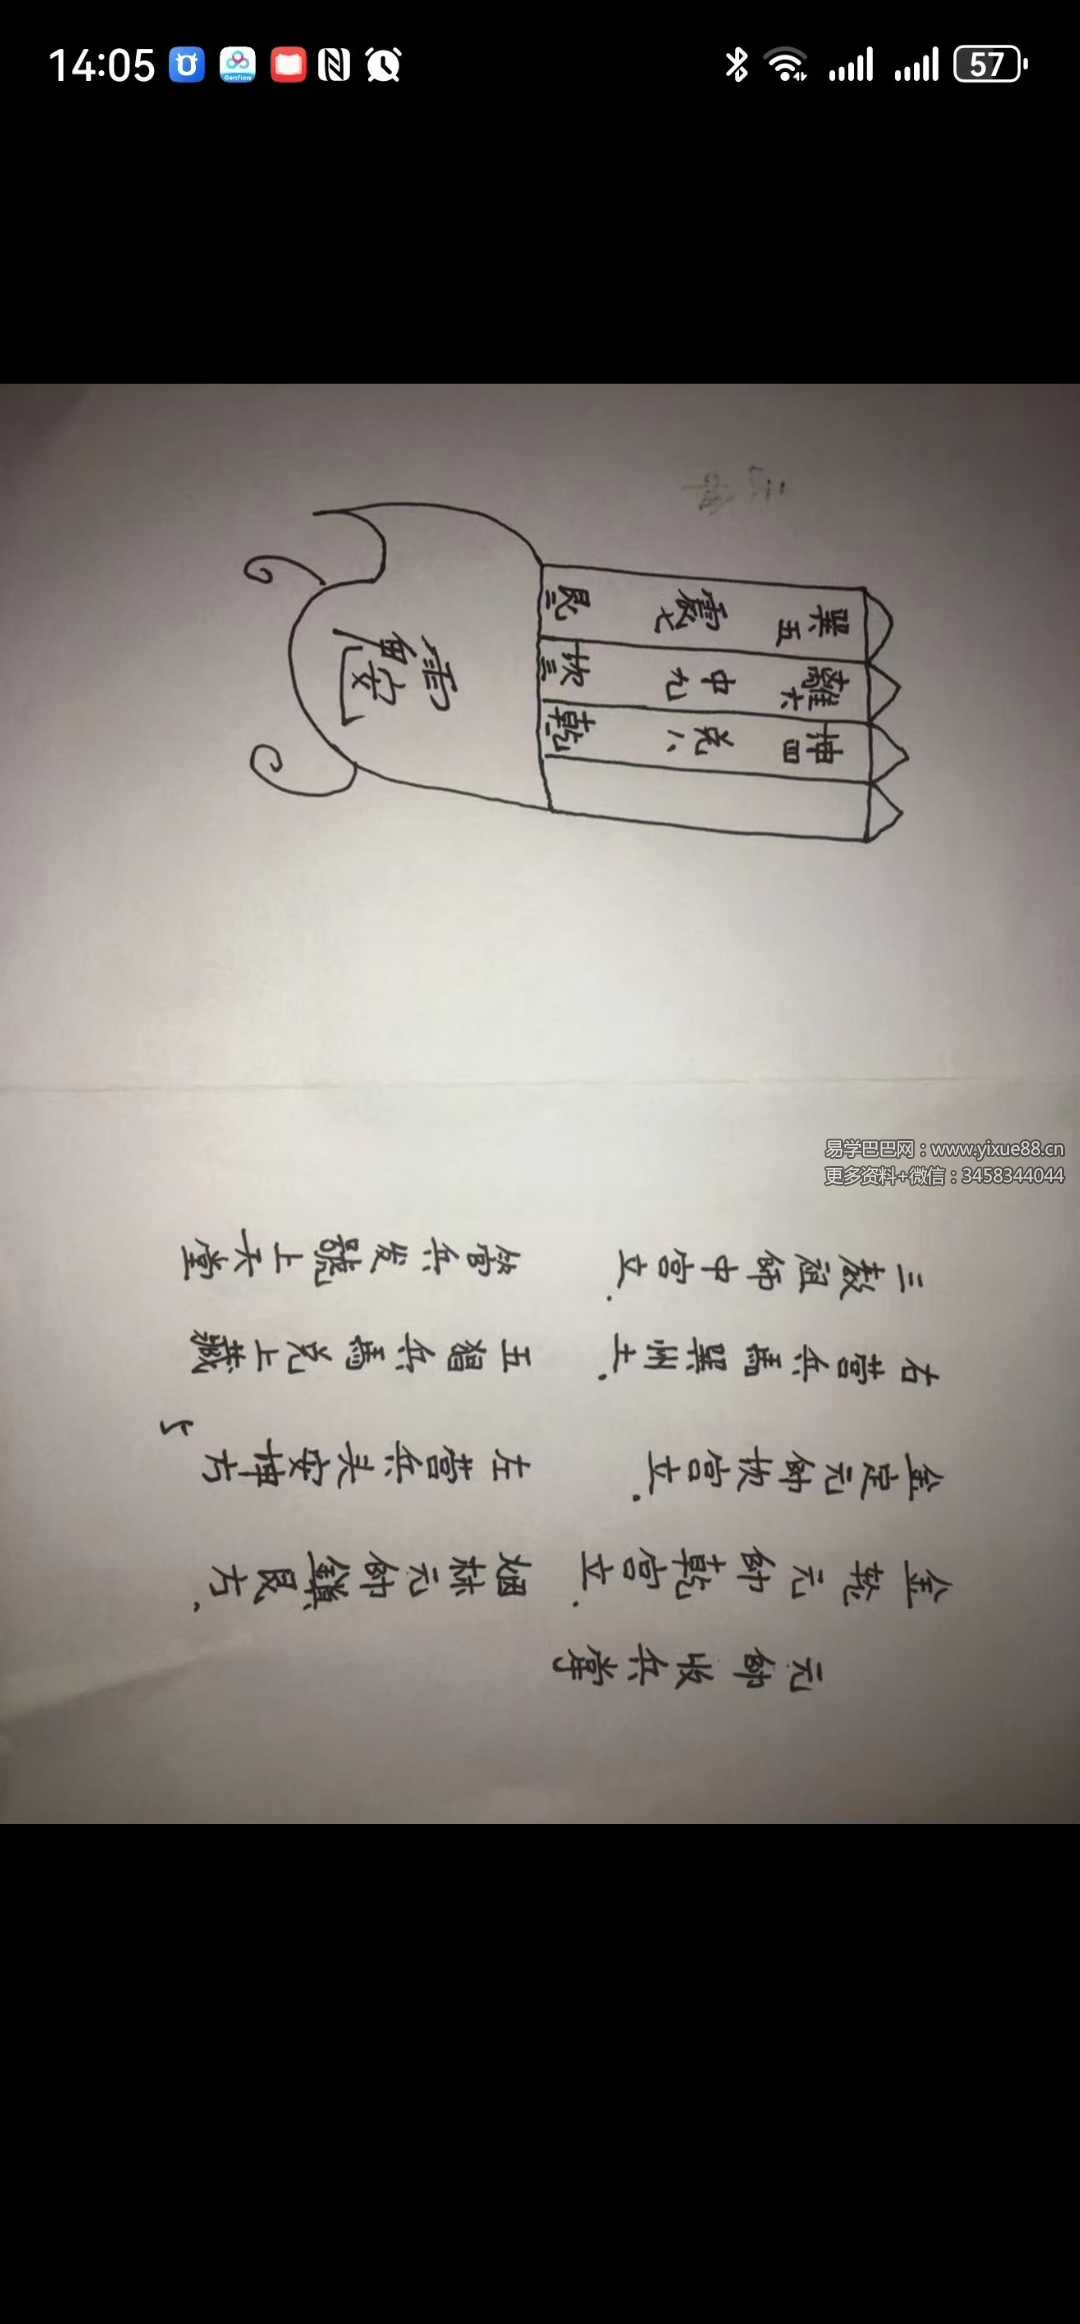 14:05
57
元帥收兵掌
金轮元帥乾宫立. 烟林元帥鎮艮方.
金定元帥坎宫立. 左营兵头安坤方
右营兵馬巽州土. 五猖兵馬兑上藏
三教祖師中宫立. 管兵发號上天堂
坤四 兑八 乾一
離六 中九 坎三
巽五 震七 艮二
安
易学巴巴网：www.yixue88.cn
更多资料+微信：3458344044